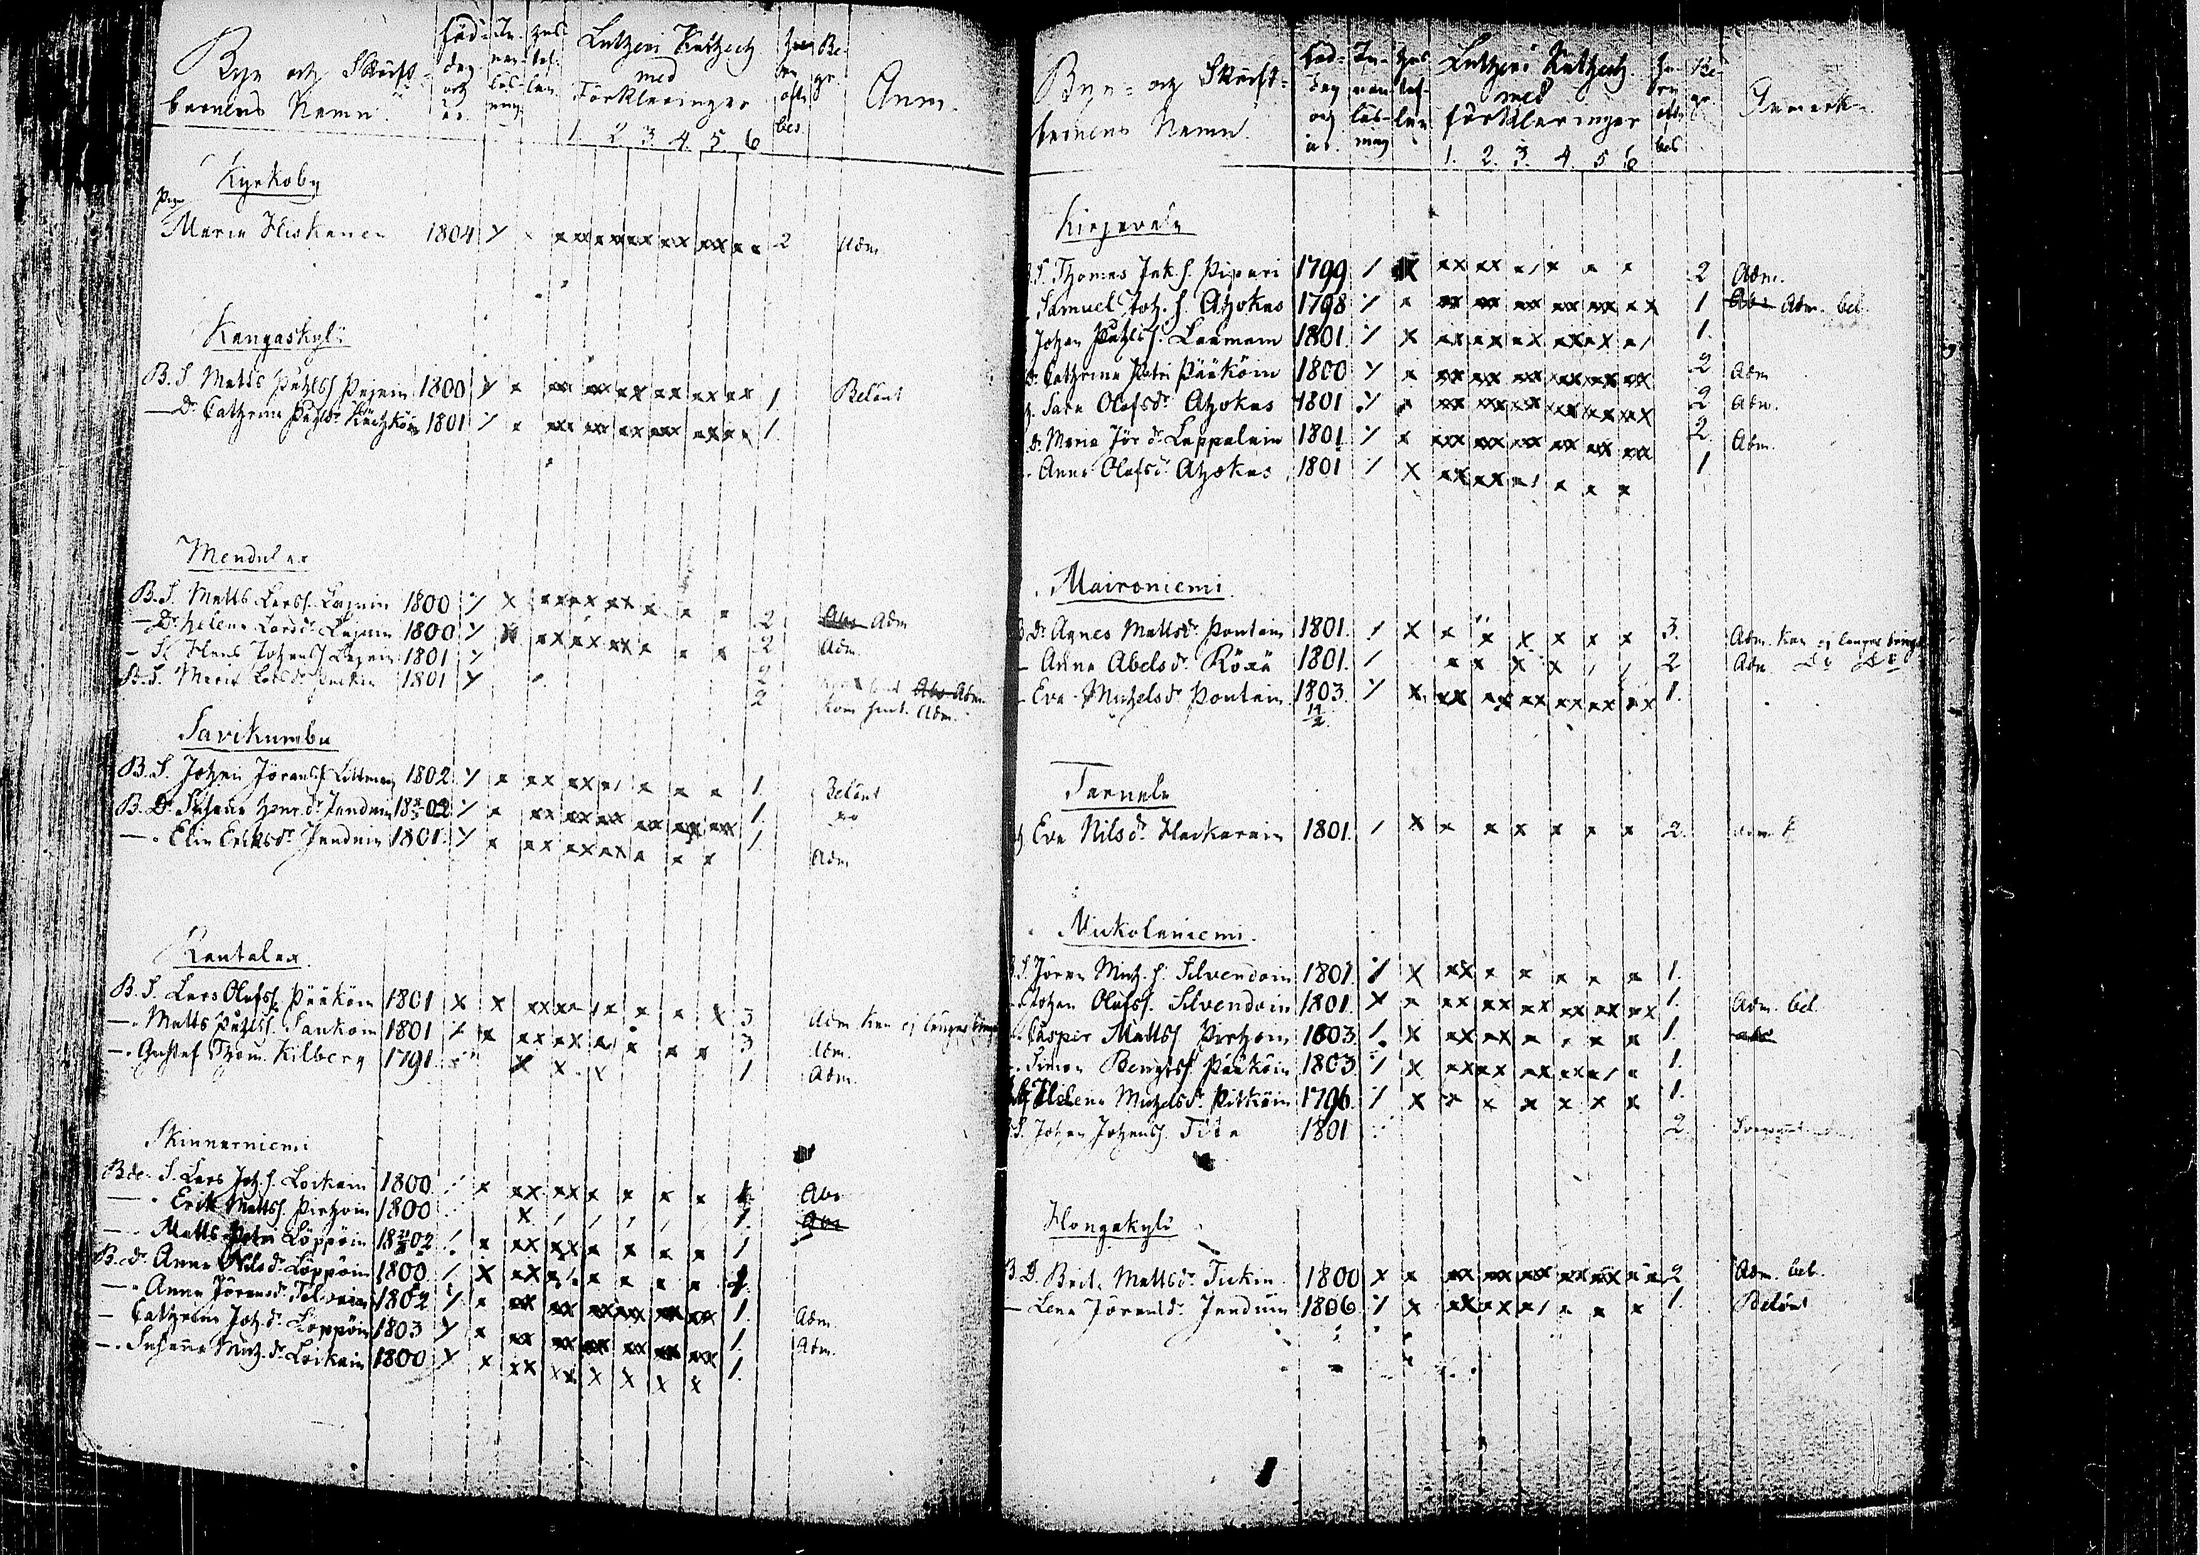 Byn och Skrift-
barnens Namn.
Föd-
dag
och
år.
In-
nan-
läs-
ning
Hus-
taf-
lan
Lutheri Kateches
med
Förklaringer
1. 2. 3. 4. 5. 6
Huru
ofta
bes.
Be-
gr.
Anm.
Kyrkoby
Pig.
Maria Hiskanen 1804 2 Adm
Kangaskylä
B. S. Matts Påhlss Pajuin 1800 1. Belönt
— Dr Cathrina Påhlsdr 1801 1.
Mendulax
B. S. Matts Larss. Lajuin 1800 2 Abs Adm
— Dr Helena Larsdr Lajuin 1800 2 Adm.
— S. Hans Johanss Lajuin 1801 2 Abs Adm.
Maria Larsdr 1801 2 kom sent. Adm.
Savikumbu
B. S. Johan Göranss Littman 1802 1. Belönt
B. Dr Susanna Henr. dr Junduin 1802 1.
— . Elin Eriksdr Junduin 1801. 1. Adm
Rantalax
B. S. Lars Olofss. Pääköin 1801 3 Adm kan ej längre bringas
— . Matts Påhlss. Saukoin 1801 3 Adm.
— . Gustaf Thom. Kilberg 1791. 1 Adm.
Skinnarniemi
Bde. S. Lars Joh. s. Loikain 1800. 1. Abs
— . Erik Matts. Pirhoin 1800 1. Abs
— . Matts Petri Löppöin 1802 1
B. dr Anna Nilsdr Löppöin 1800 1
— . Anna Göransdr 1802 1. Adm.
— Cathrina Joh. dr Löppöin 1803 1. Adm.
— . Susanna Mich. dr Loikain 1800 1.
Byn- och Skrift-
barnens Namn.
Föd-
dag
och
år.
In-
nan
läs-
ning
Hus
taf-
lan
Lutheri Katheches.
med
förklaringer
1. 2. 3. 4. 5 6
Hu-
ru
ofta
bes
Be-
gr.
Anmerk.
Kirjavala
S. Thomas Joh. s. Pipari 1799 2 Adm.
Samuel Joh. s. Ahokas 1798 1 Abs Adm. bel.
Johan Påhlss. Laamain 1801. 1.
Dr Cathrina Petri Pääköin 1800 2 Adm
Sara Olofsdr Ahokas 1801 2 Adm.
Dr Maria Jör dr Lappalain 1801. 2. Adm.
Anna Olofsdr Ahokas 1801 1
Maironiemi
B. Dr Agnes Mattsdr Pontain 1801. 3. Adm. kan ej längre bringas
— Anna Abelsdr Röxä 1801. 2 Adm Do Do
— Eva Michelsdr Pontain 1803. 1.
Tarvala
Eva Nilsdr Hackarain 1801. 2. Adm
Nickolaniemi.
S. Jöran Mich. s. Silvendoin 1801. 1.
Johan Olofss. Silvendoin 1801. 1. Adm. bel.
Casper Matts Pirhoin 1803 1. abs
Simon Bengtss Pääköin 1803. 1.
Helena Michelsdr Pitköin 1796. 1.
S. Johan Johanss. Tita 1801 2.
Hongakylä
B. D. Brita Mattsdr Tickin 1800 2 Adm. bel.
— Lena Göransdr Junduin 1806 1. Belönt